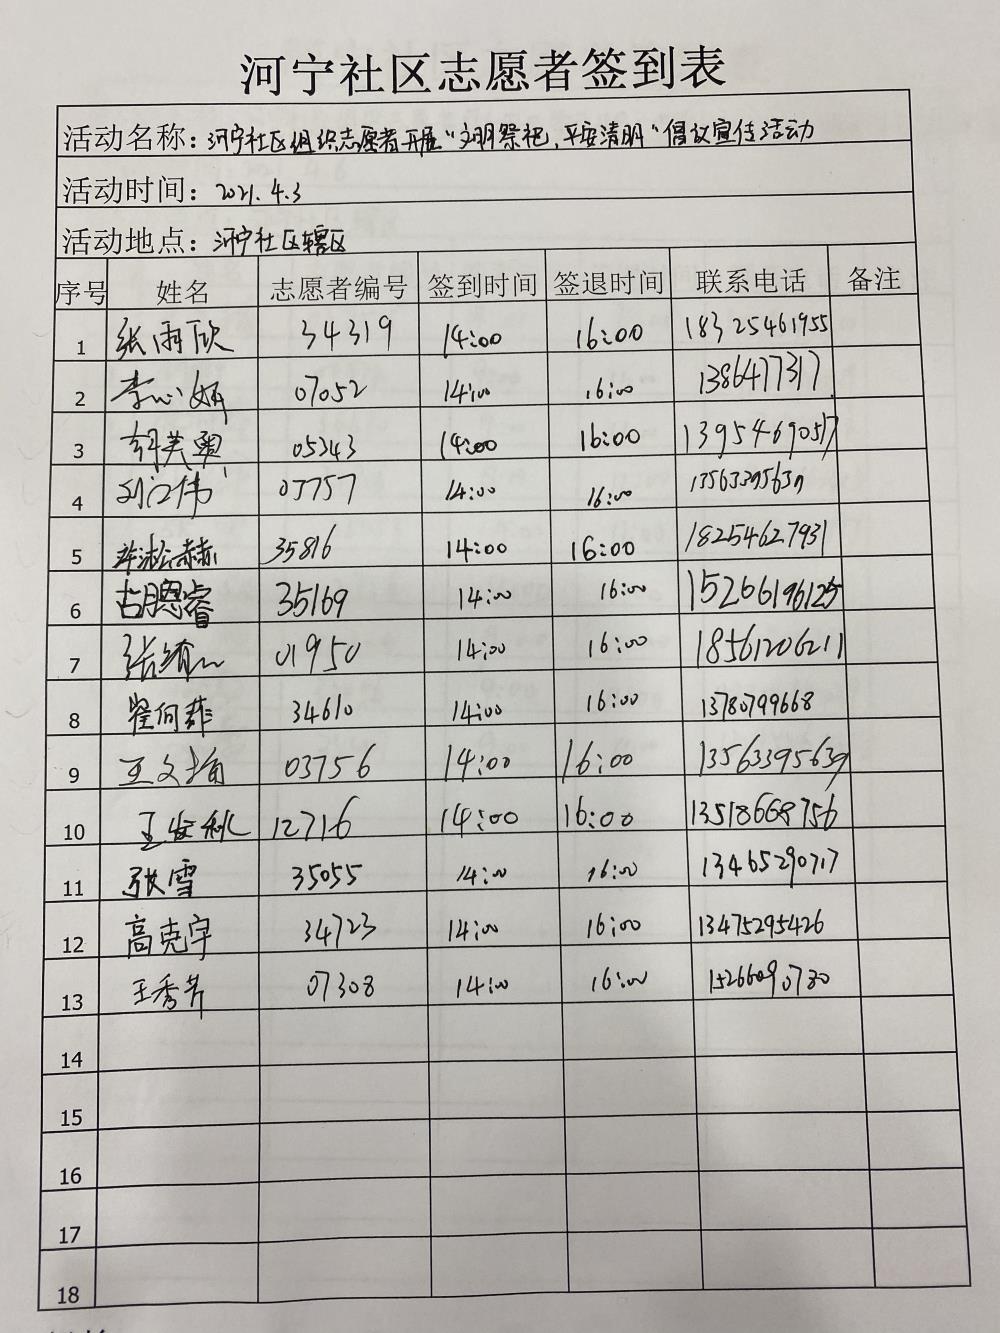 河宁社区志愿者签到表
活动名称：河宁社区组织志愿者开展“文明祭祀，平安清明”倡议宣传活动
活动时间：2021.4.3
活动地点：河宁社区辖区
序号 姓名 志愿者编号 签到时间 签退时间 联系电话 备注
1 张雨欣 34319 14:00 16:00 18325461955
2 李心妍 07052 14:00 16:00 1386477317
3 05343 14:00 16:00 13954690517
4 刘江伟 03757 14:00 16:00 13563395639
5 35816 14:00 16:00 18254627931
6 古聪睿 35169 14:00 16:00 15266196125
7 01950 14:00 16:00 18561206211
8 翟何菲 34610 14:00 16:00 13780799668
9 王文娟 03756 14:00 16:00 13563395639
10 12716 14:00 16:00 13518668756
11 张雪 35055 14:00 16:00 13465290717
12 高克宇 34723 14:00 16:00 13475295426
13 王秀芳 07308 14:00 16:00 15266090780
14
15
16
17
18